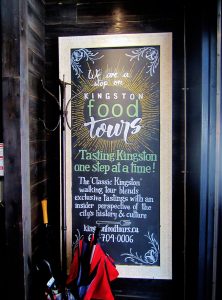 We are a
stop on
KINGSTON
food
tours
Tasting Kingston
one step at a time!
The Classic Kingston
walking tour blends
exclusive tastings with an
insider perspective of the
city's history & culture
709-0006